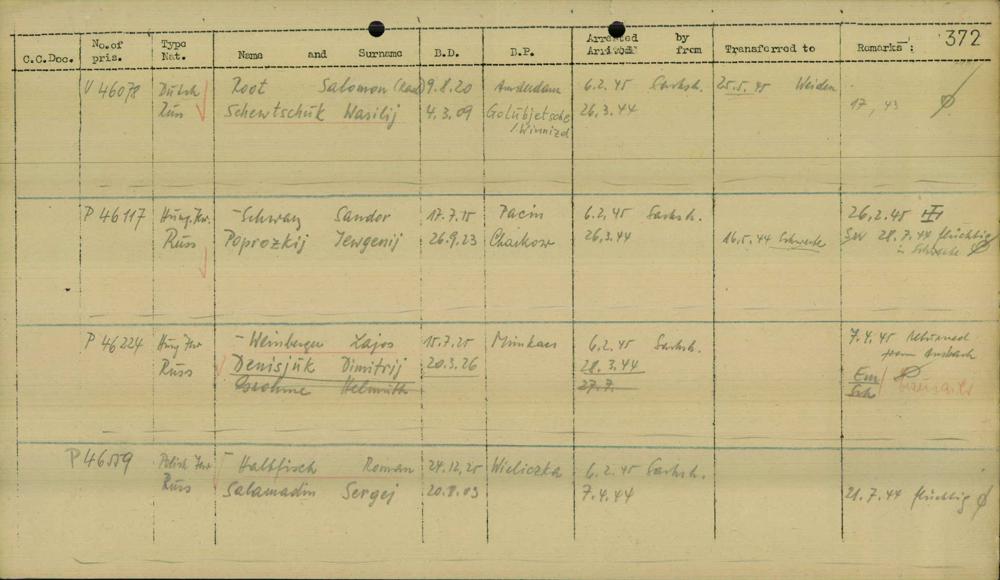 372
C.C.Doc. No.of pris. Type Nat. Name and Surname B.D. B.P. Arrested Arrived by from Transferred to Remarks :
V 46078 Dutch Root Salomon 9.8.20 Amsterdam 6.2.45 Sachsh. 25.5.45 Weiden
Russ Schewtschuk Wasilij 4.3.09 26.3.44 17, 43
P 46117 Hung. Jew. - Schwarz Sandor 17.7.15 Pacin 6.2.45 Sachsh. 26.2.45
Russ Poprozkij Jewgenij 26.9.23 Charkow 26.3.44 16.5.44 28.7.44 flüchtig
in
P 46224 Hung Jew - Weinberger Lajos 15.7.25 Munkacs 6.2.45 Sachsh. 7.4.45 Returned
from Ansbach
Russ Denisjuk Dimitrij 20.3.26 28.3.44
Helmuth 27.7.
P 46559 Polish Jew - Halbfisch Roman 24.12.25 Wieliczka 6.2.45 Sachsh.
Russ Salamadin Sergej 20.8.03 7.4.44 21.7.44 flüchtig